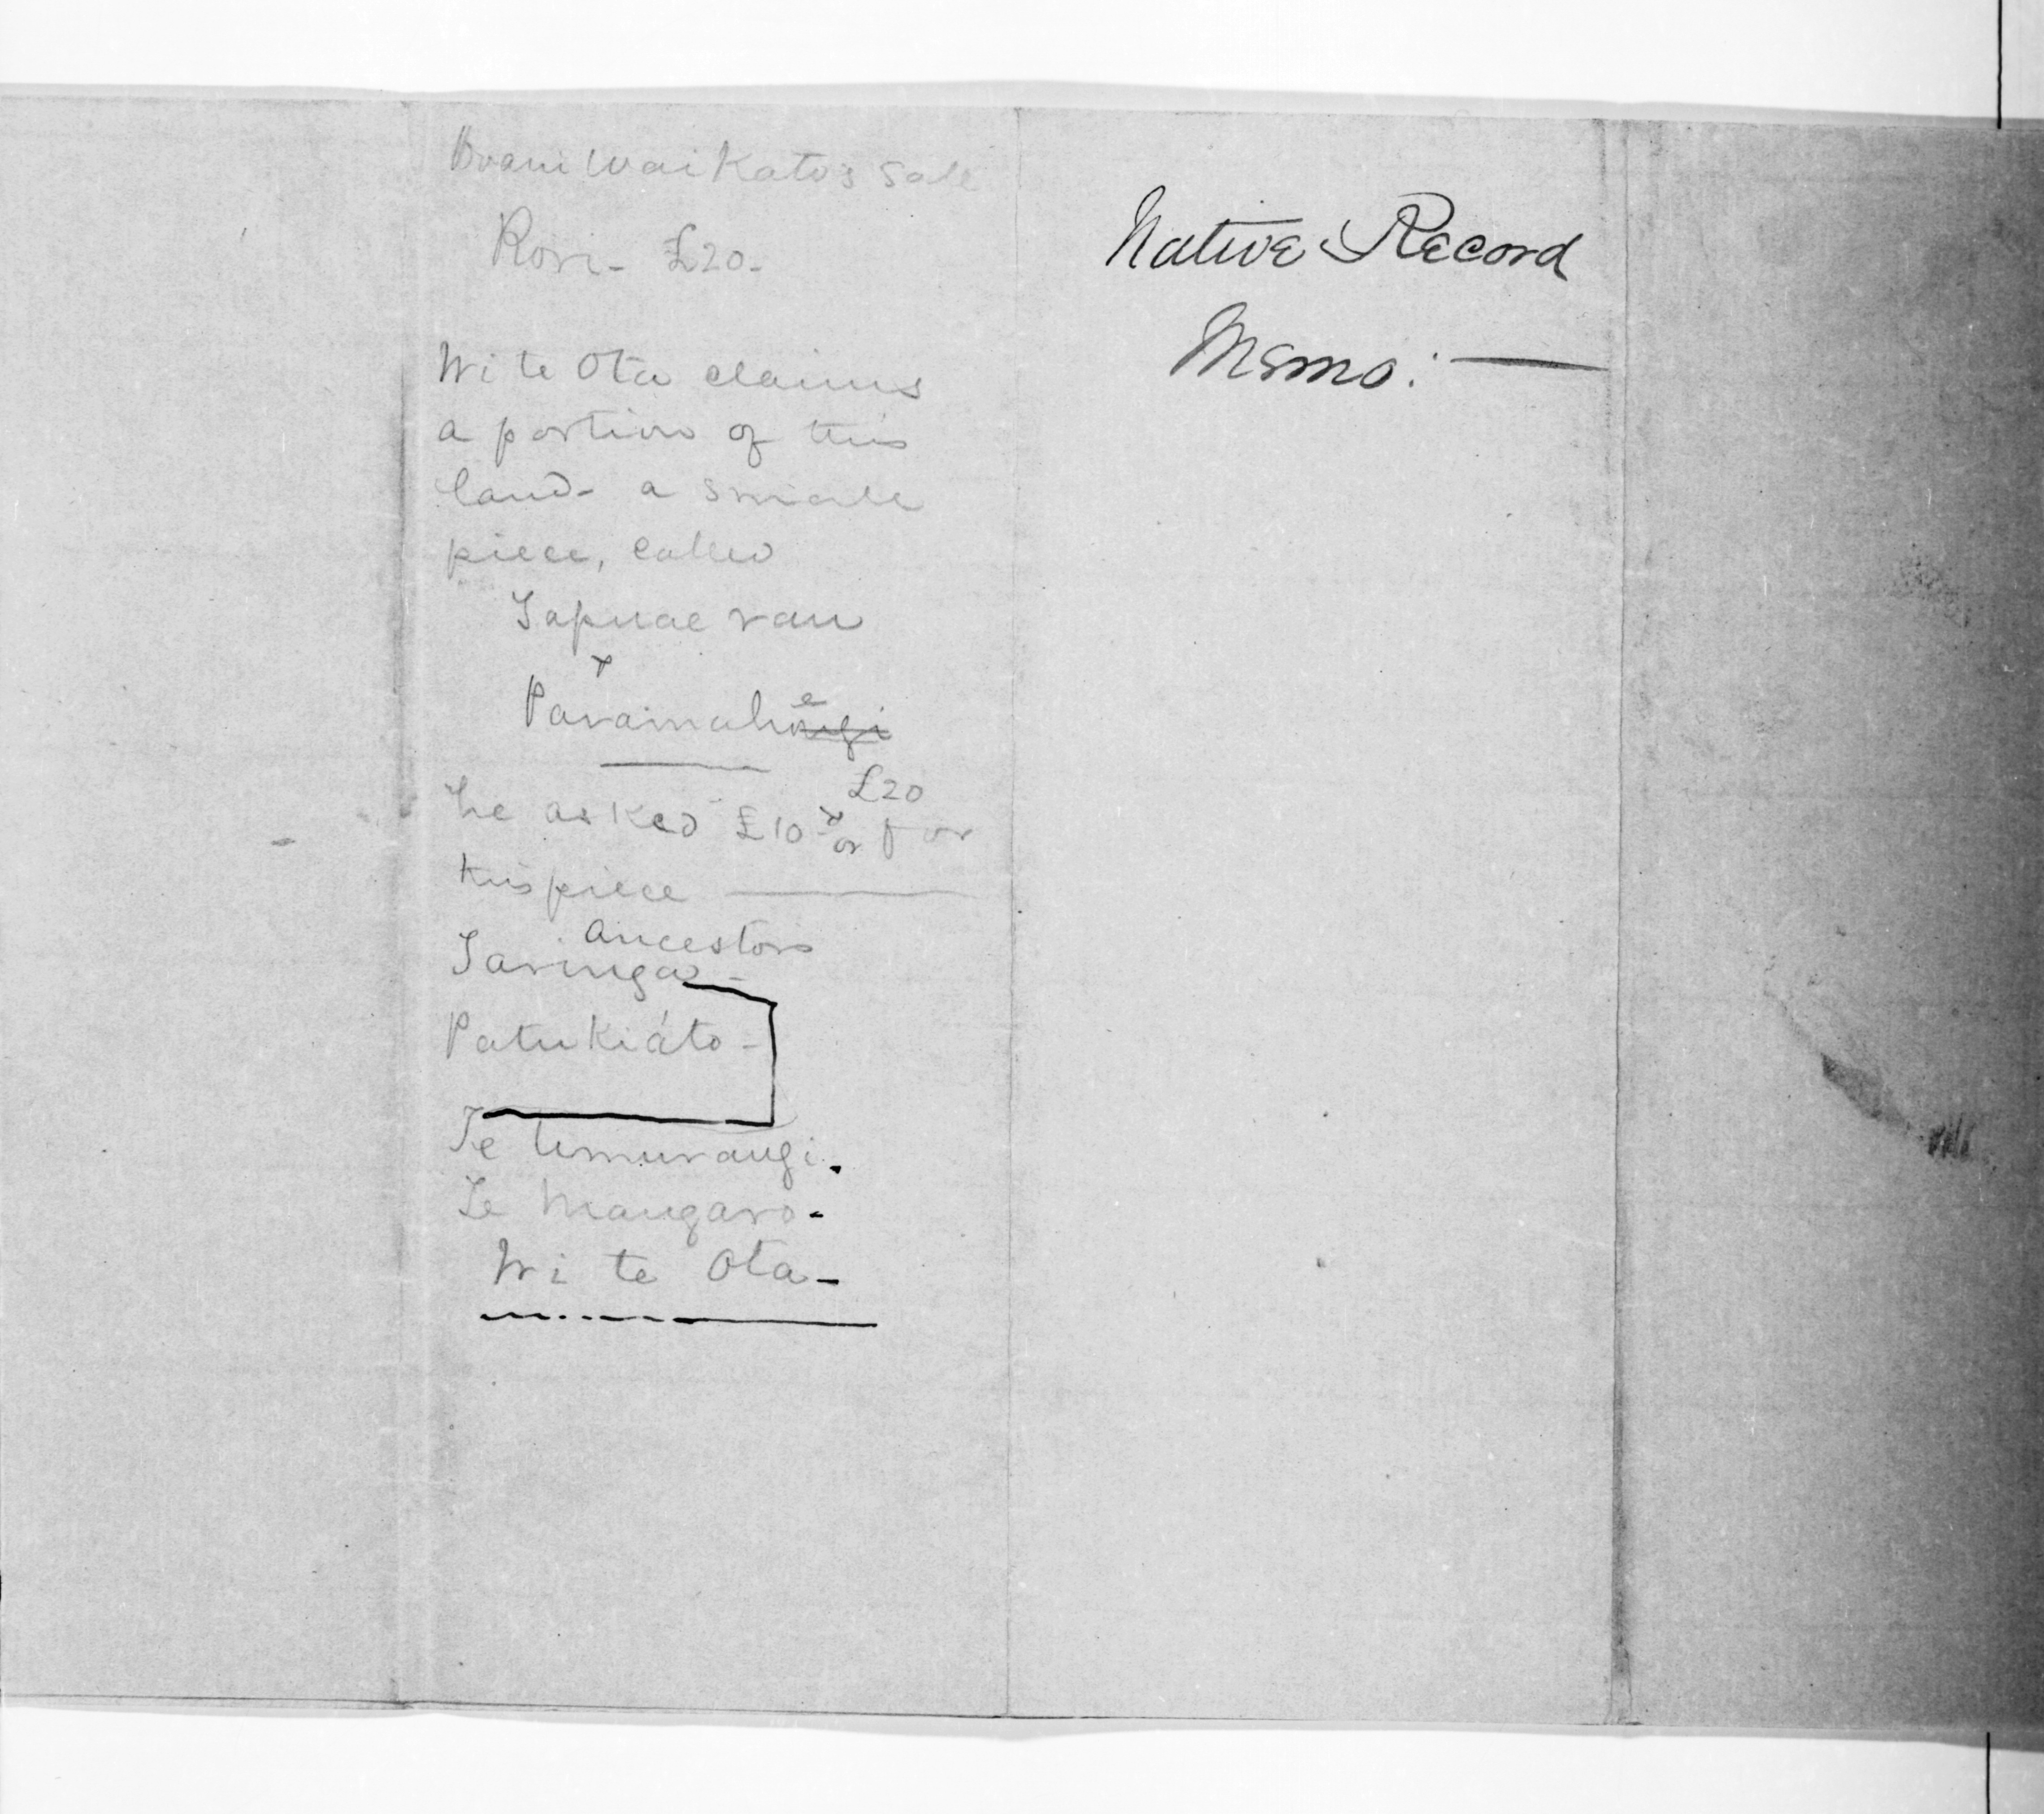 Waikato's Sale
Rori - £20 -
Wi te Ota claims
a portion of this
land - a small
piece, called
Tapuae rau
x
Paramahe ngi
£20
he asked £10 x or for
this piece
Ancestors
Taringa -
Patukiáto -
Te Umurangi.
Te Mangaro -
Wi te Ota -
Native Record
Memo: —